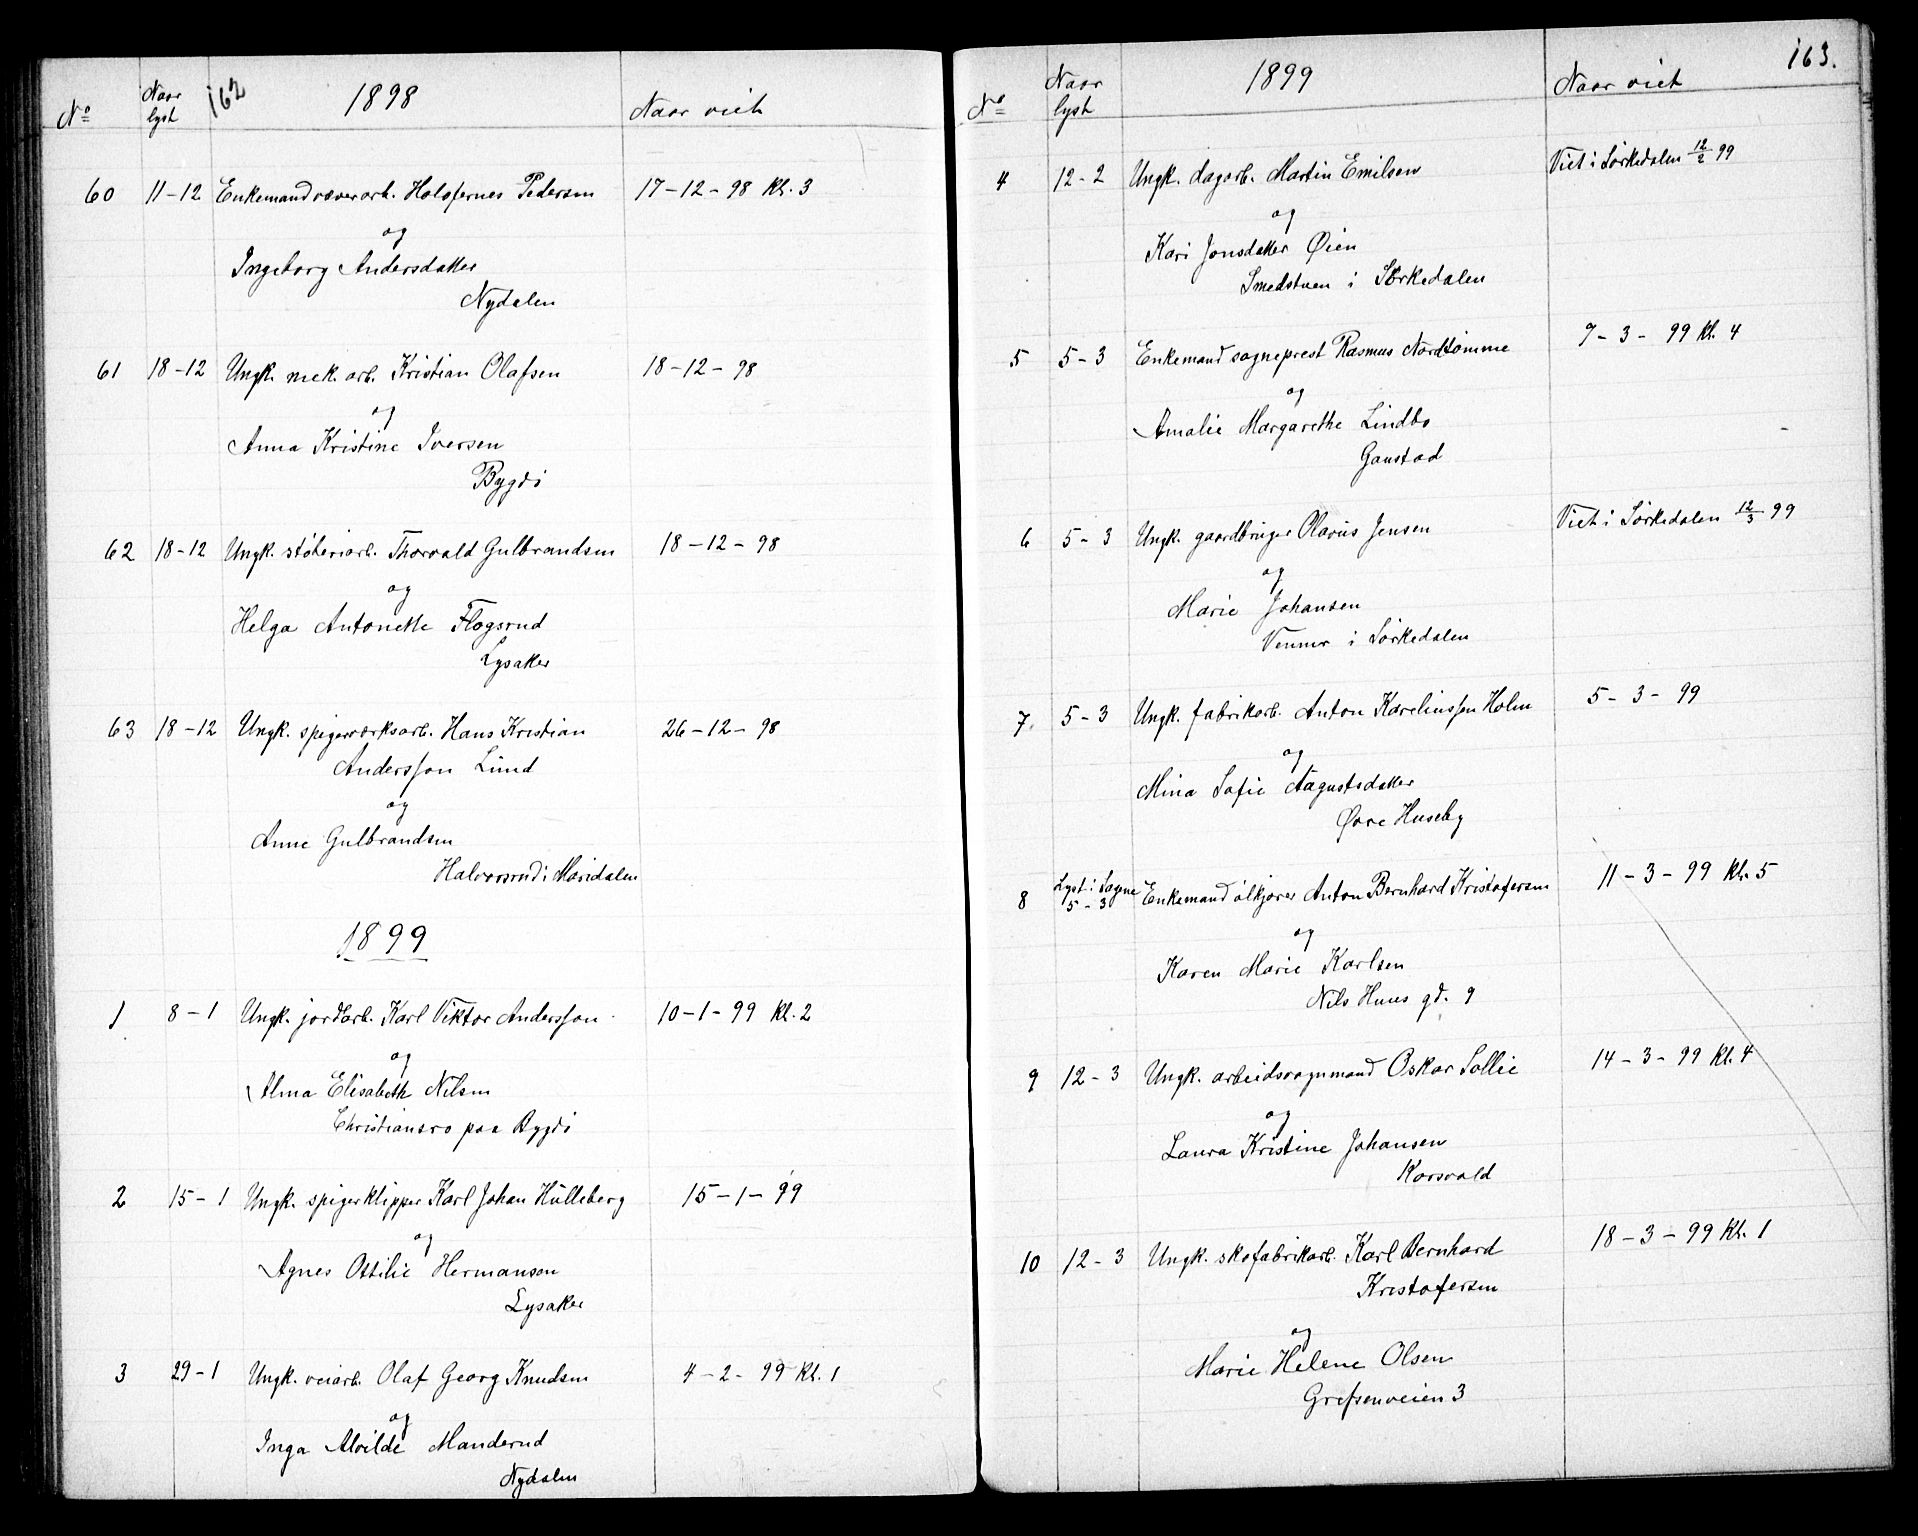 162
1898
No Naar lyst Naar viet
60 11-12 Enkemand væverarb. Holofernes Pedersen 17-12-98 Kl. 3
og
Ingeborg Andersdatter
Nydalen
61 18-12 Ungk. mek. arb. Kristian Olafsen 18-12-98
og
Anna Kristine Iversen
Bygdö
62 18-12 Ungk. støberiarb. Thorvald Gulbrandsen 18-12-98
og
Helga Antonette Flogsrud
Lysaker
63 18-12 Ungk. spigerværksarb. Hans Kristian 26-12-98
Andersson Lund
og
Anne Gulbrandsen
Halvorsrud i Maridalen
1899
1 8-1 Ungk. jordarb. Karl Viktor Andersson 10-1-99 Kl. 2
og
Alma Elisabeth Nilsen
Christiansro paa Bygdö
2 15-1 Ungk. spigerklipper Karl Johan Hülleberg 15-1-99
og
Agnes Ottilie Hermansen
Lysaker
3 29-1 Ungk. veiarb. Olaf Georg Knudsen 4-2-99 Kl. 1
og
Inga Alvilde Manderud
Nydalen
163.
1899
No Naar lyst Naar viet
4 12-2 Ungk. dagarb. Martin Emilsen Viet i Sörkedalen 12/2 99
og
Kari Jonsdatter Øien
Smedstuen i Sörkedalen
5 5-3 Enkemand sogneprest Rasmus Nordtömme 7-3-99 Kl. 4
og
Amalie Margarethe Lindbo
Gaustad
6 5-3 Ungk. gaardbruger Olavus Jensen Viet i Sörkedalen 12/3 99
og
Marie Johansen
Venner i Sörkedalen
7. 5-3 Ungk. fabrikarb. Anton Karelinsson Holm 5-3-99
og
Mina Sofie Augustsdatter
Øvre Huseby
8 Lyst i Sagne 5-3 Enkemand ölkjører Anton Bernhard Kristofersen 11-3-99 Kl. 5
og
Karen Marie Karlsen
Nils Huus gd. 9
9 12-3 Ungk. arbeidsvognmand Oskar Sollie 14-3-99 Kl. 4
og
Laura Kristine Johansen
Korsvold
10 12-3 Ungk. skofabrikarb. Karl Bernhard 18-3-99 Kl. 1
Kristofersen
og
Marie Helene Olsen
Grefsenveien 3